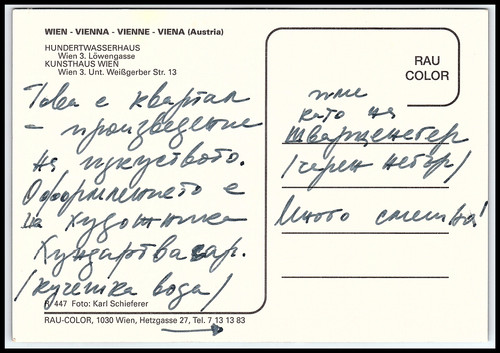 WIEN - VIENNA - VIENNE - VIENA (Austria)
HUNDERTWASSERHAUS
Wien 3. Löwengasse
KUNSTHAUS WIEN
Wien 3. Unt. Weißgerber Str. 13
Това е квартал
- произведение
на изкуството.
Оформлението е
на художника
Хундартвасар.
/кучешка вода/
R/447 Foto: Karl Schieferer
RAU-COLOR, 1030 Wien, Hetzgasse 27, Tel. 7 13 13 83
RAU
COLOR
име
като на
Шварценегер
/черен негър/
Много смешно!